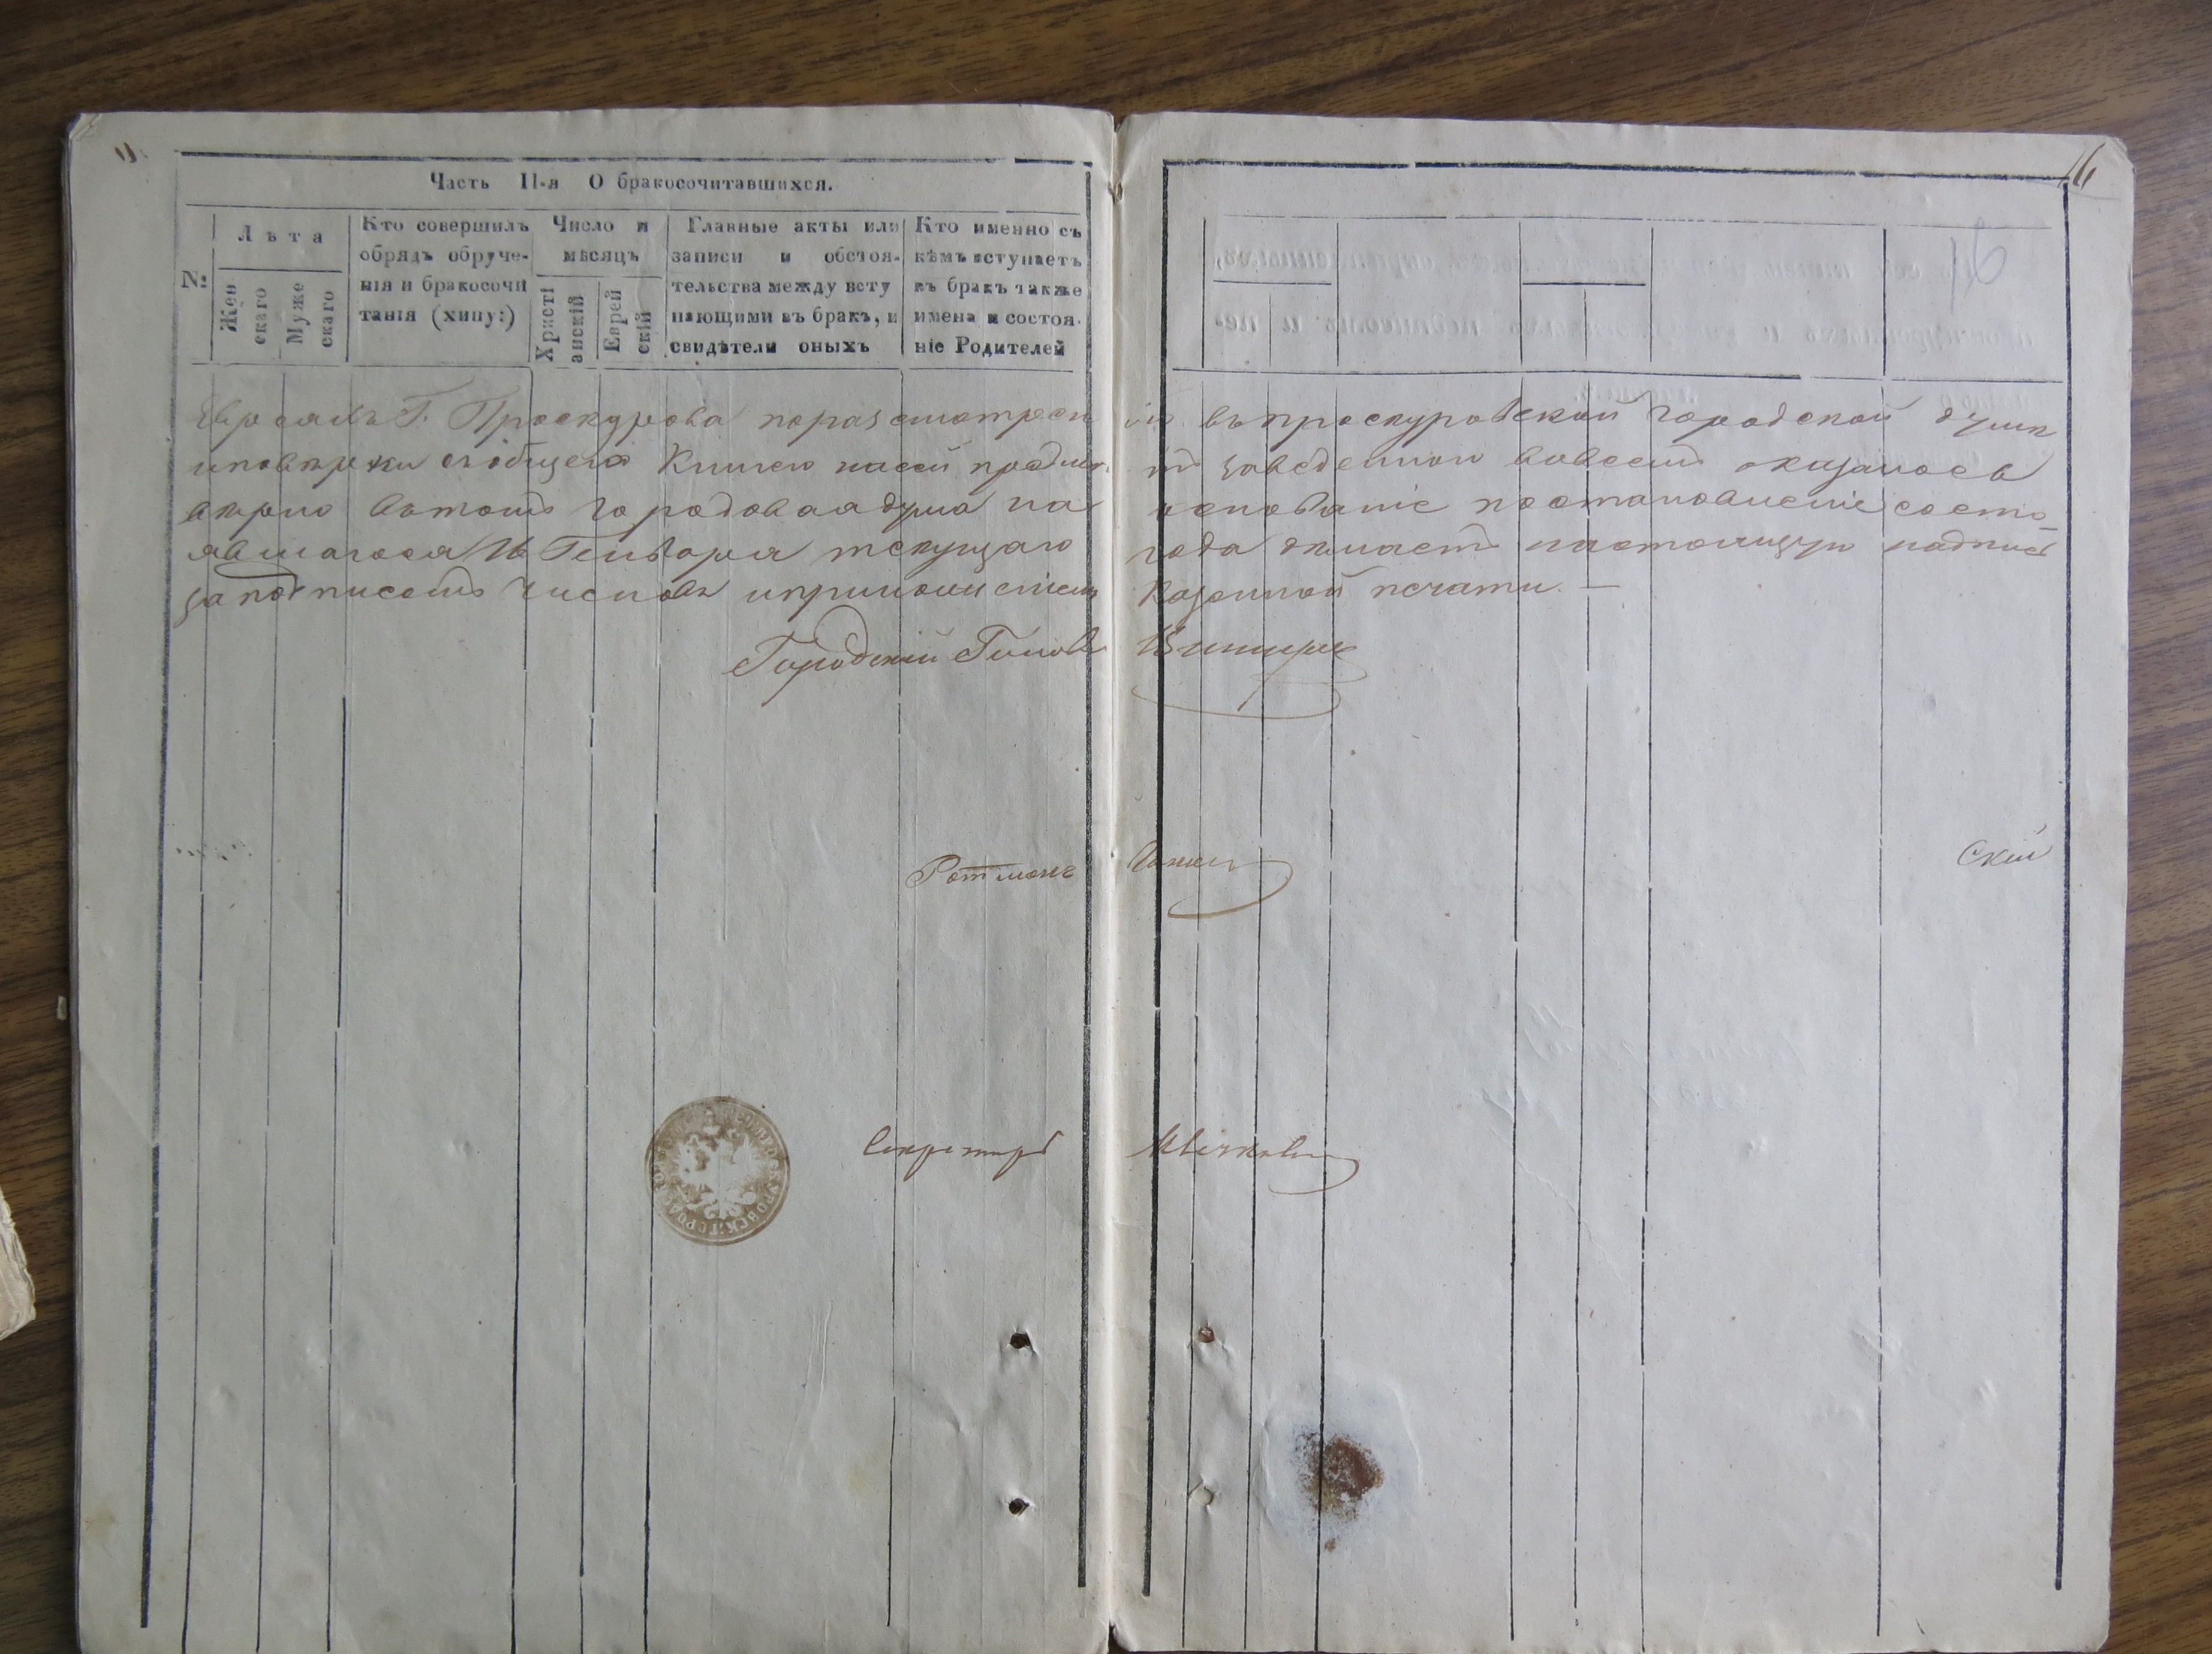 16
16
Часть II-я О бракосочитавшихся.
№
Лѣта
Жен
скаго
Муже
скаго
Кто совершилъ
обрядъ обруче-
нія и бракосочи
танія (хипу:)
Число и
мѣсяцъ
Христі
анскій
Еврей
скій
Главные акты или
записи и обстоя-
тельства между всту
пающими въ бракъ, и
свидѣтели оныхъ
Кто именно съ
кѣмъ вступаетъ
въ бракъ также
имена и состоя-
ніе Родителей
Г. Проскурова по разсмотрен іи въ проскуровской городской думѣ
и повѣрки съ общею Книгою на сей предметъ заведенною во всемъ оказалось
вѣрно въ томъ городовая дума на основаніе постановленіе состо_
явшагося Генваря текущаго года дѣлаетъ настоящую надпись
за подписемъ членовъ и приложеніемъ Казенной печати. —
Городскій Голова
Ротманъ
Скій
Секретарь